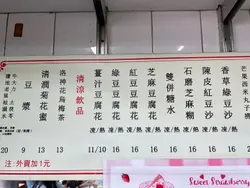 香草綠豆沙 凍/熱 16
陳皮紅豆沙 凍/熱 16
石磨芝麻糊 凍/熱 16
雙併糖水 凍/熱 16
芝麻豆腐花 凍/熱 14
紅豆豆腐花 凍/熱 14
綠豆豆腐花 凍/熱 14
薑汁豆腐花 凍/熱 11/10
清涼飲品
洛神花烏梅茶 13
清潤菊花蜜 13
豆漿 9
20
注:外賣加1元
Sweet Strawberry